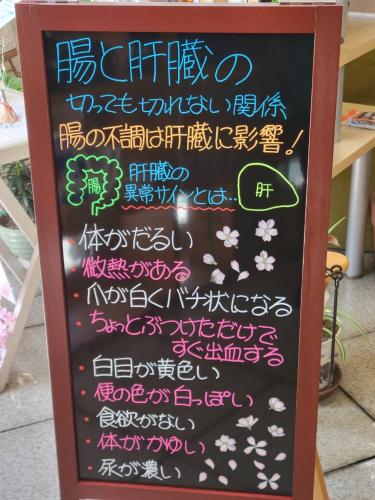 腸と肝臓の
切っても切れない関係
腸の不調は肝臓に影響!
腸
肝臓の
異常サインとは…
肝
・体がだるい
・微熱がある
・爪が白くバチ状になる
・ちょっとぶつけただけで
すぐ出血する
・白目が黄色い
・便の色が白っぽい
・食欲がない
・体がかゆい
・尿が濃い